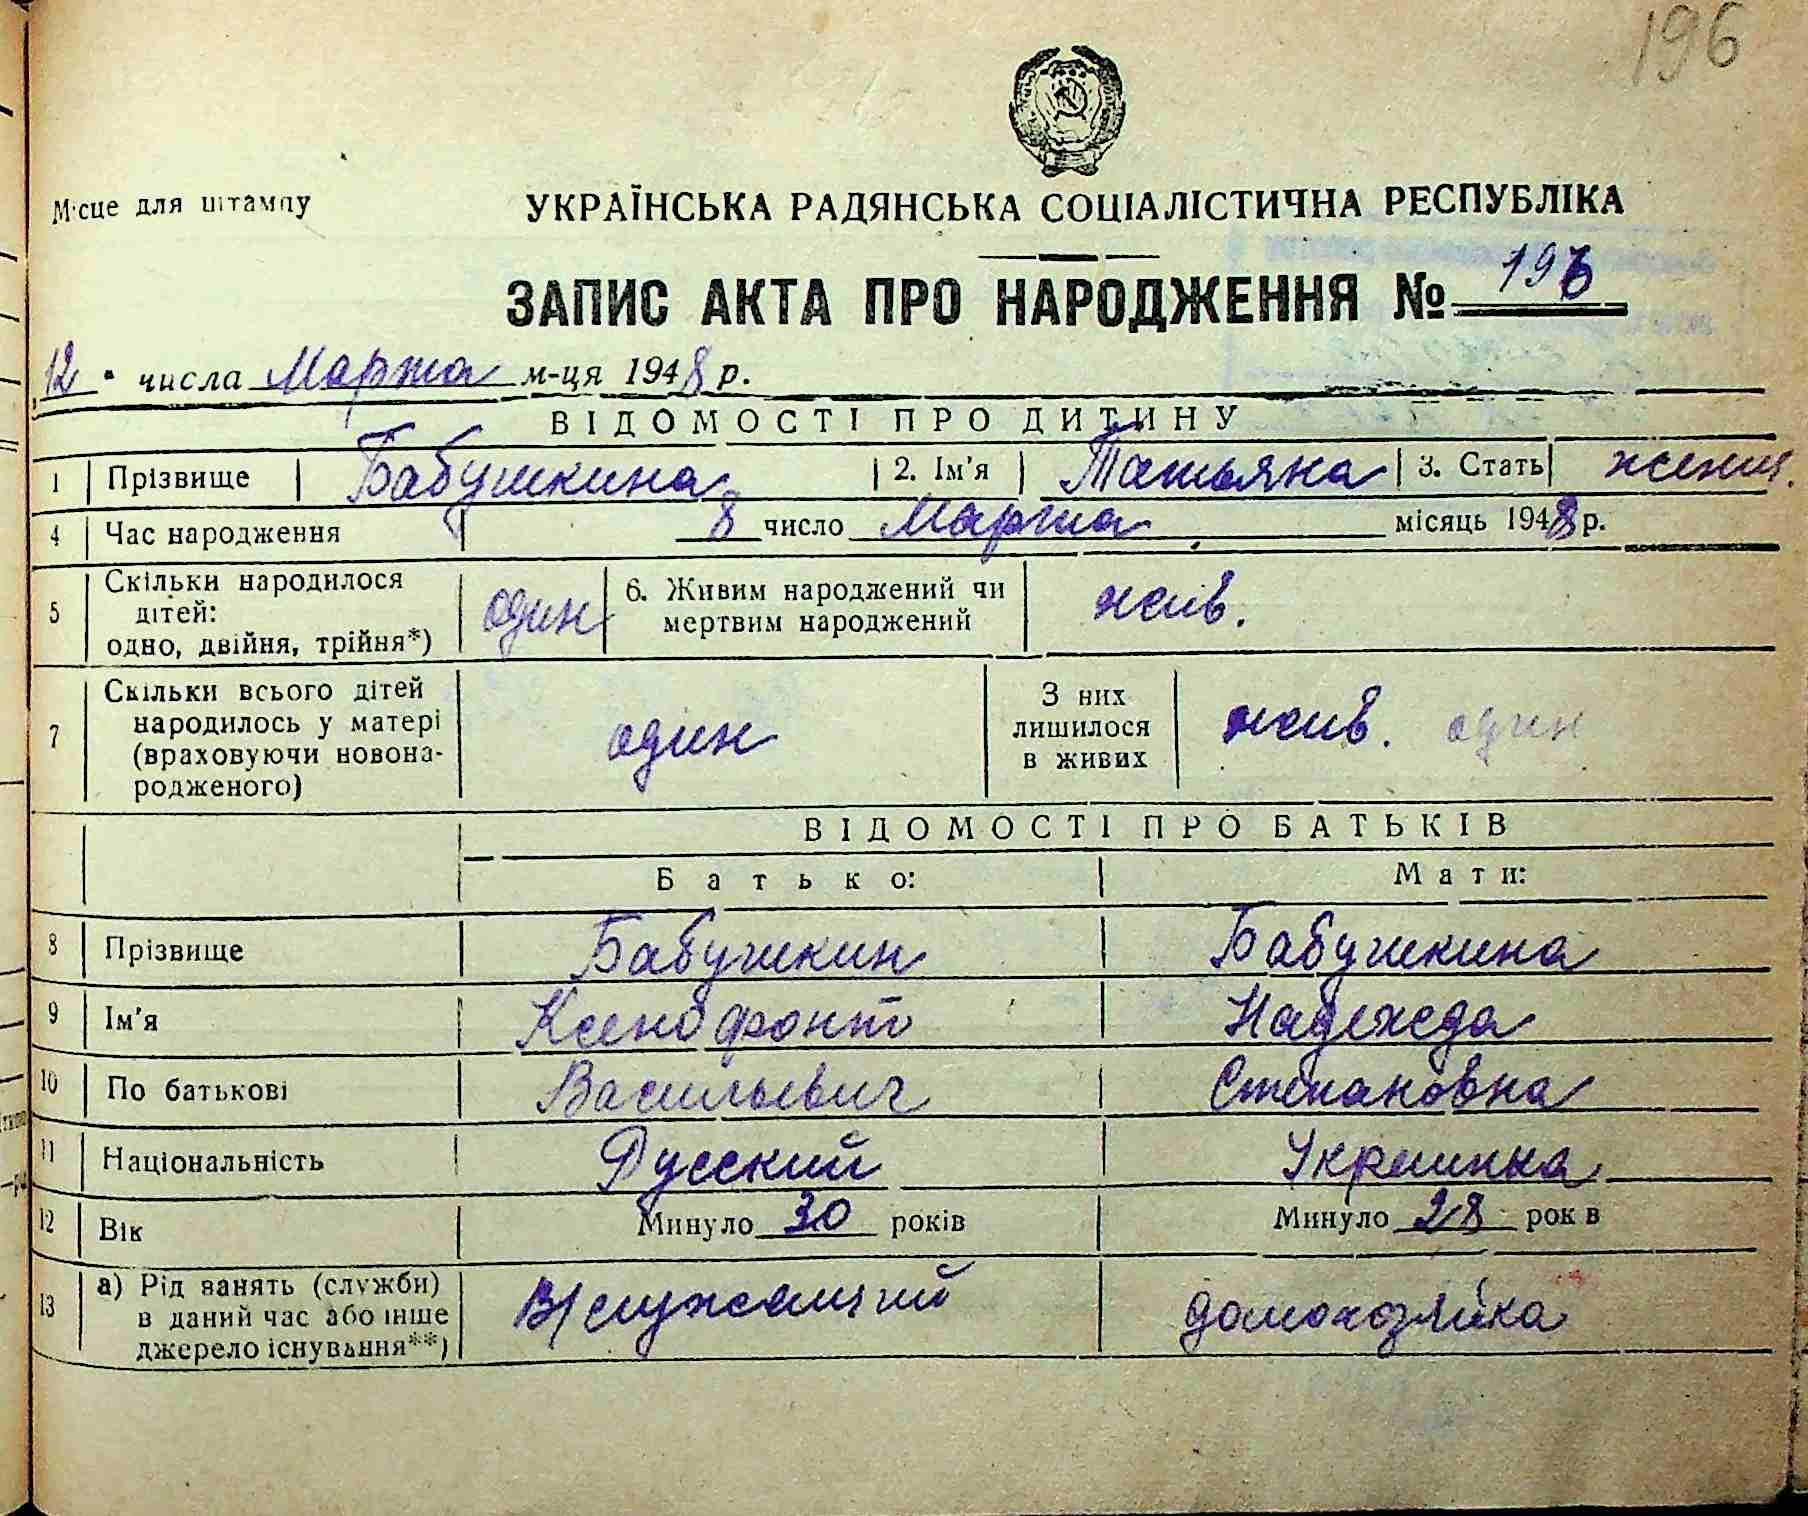 196
Місце для штампу
УКРАЇНСЬКА РАДЯНСЬКА СОЦІАЛІСТИЧНА РЕСПУБЛІКА
ЗАПИС АКТА ПРО НАРОДЖЕННЯ № 196
12 " числа Марта м-ця 1948 р.
ВІДОМОСТІ ПРО ДИТИНУ
1 Прізвище Бабушкина 2. Ім'я Татьяна 3. Стать женщ.
4 Час народження 8 число Марта місяць 1948 р.
5 Скільки народилося дітей: одно, двійня, трійня*) один 6. Живим народжений чи мертвим народжений жив.
7 Скільки всього дітей народилось у матері (враховуючи новонародженого) один З них лишилося в живих жив. один
ВІДОМОСТІ ПРО БАТЬКІВ
Батько: Мати:
8 Прізвище Бабушкин Бабушкина
9 Ім'я Ксенофонт Надежда
10 По батькові Васильевич Степановна
11 Національність Русский Украинка
12 Вік Минуло 30 років Минуло 28 рок в
13 а) Рід занять (служби) в даний час або інше джерело існування**) В/служащий домохозяйка